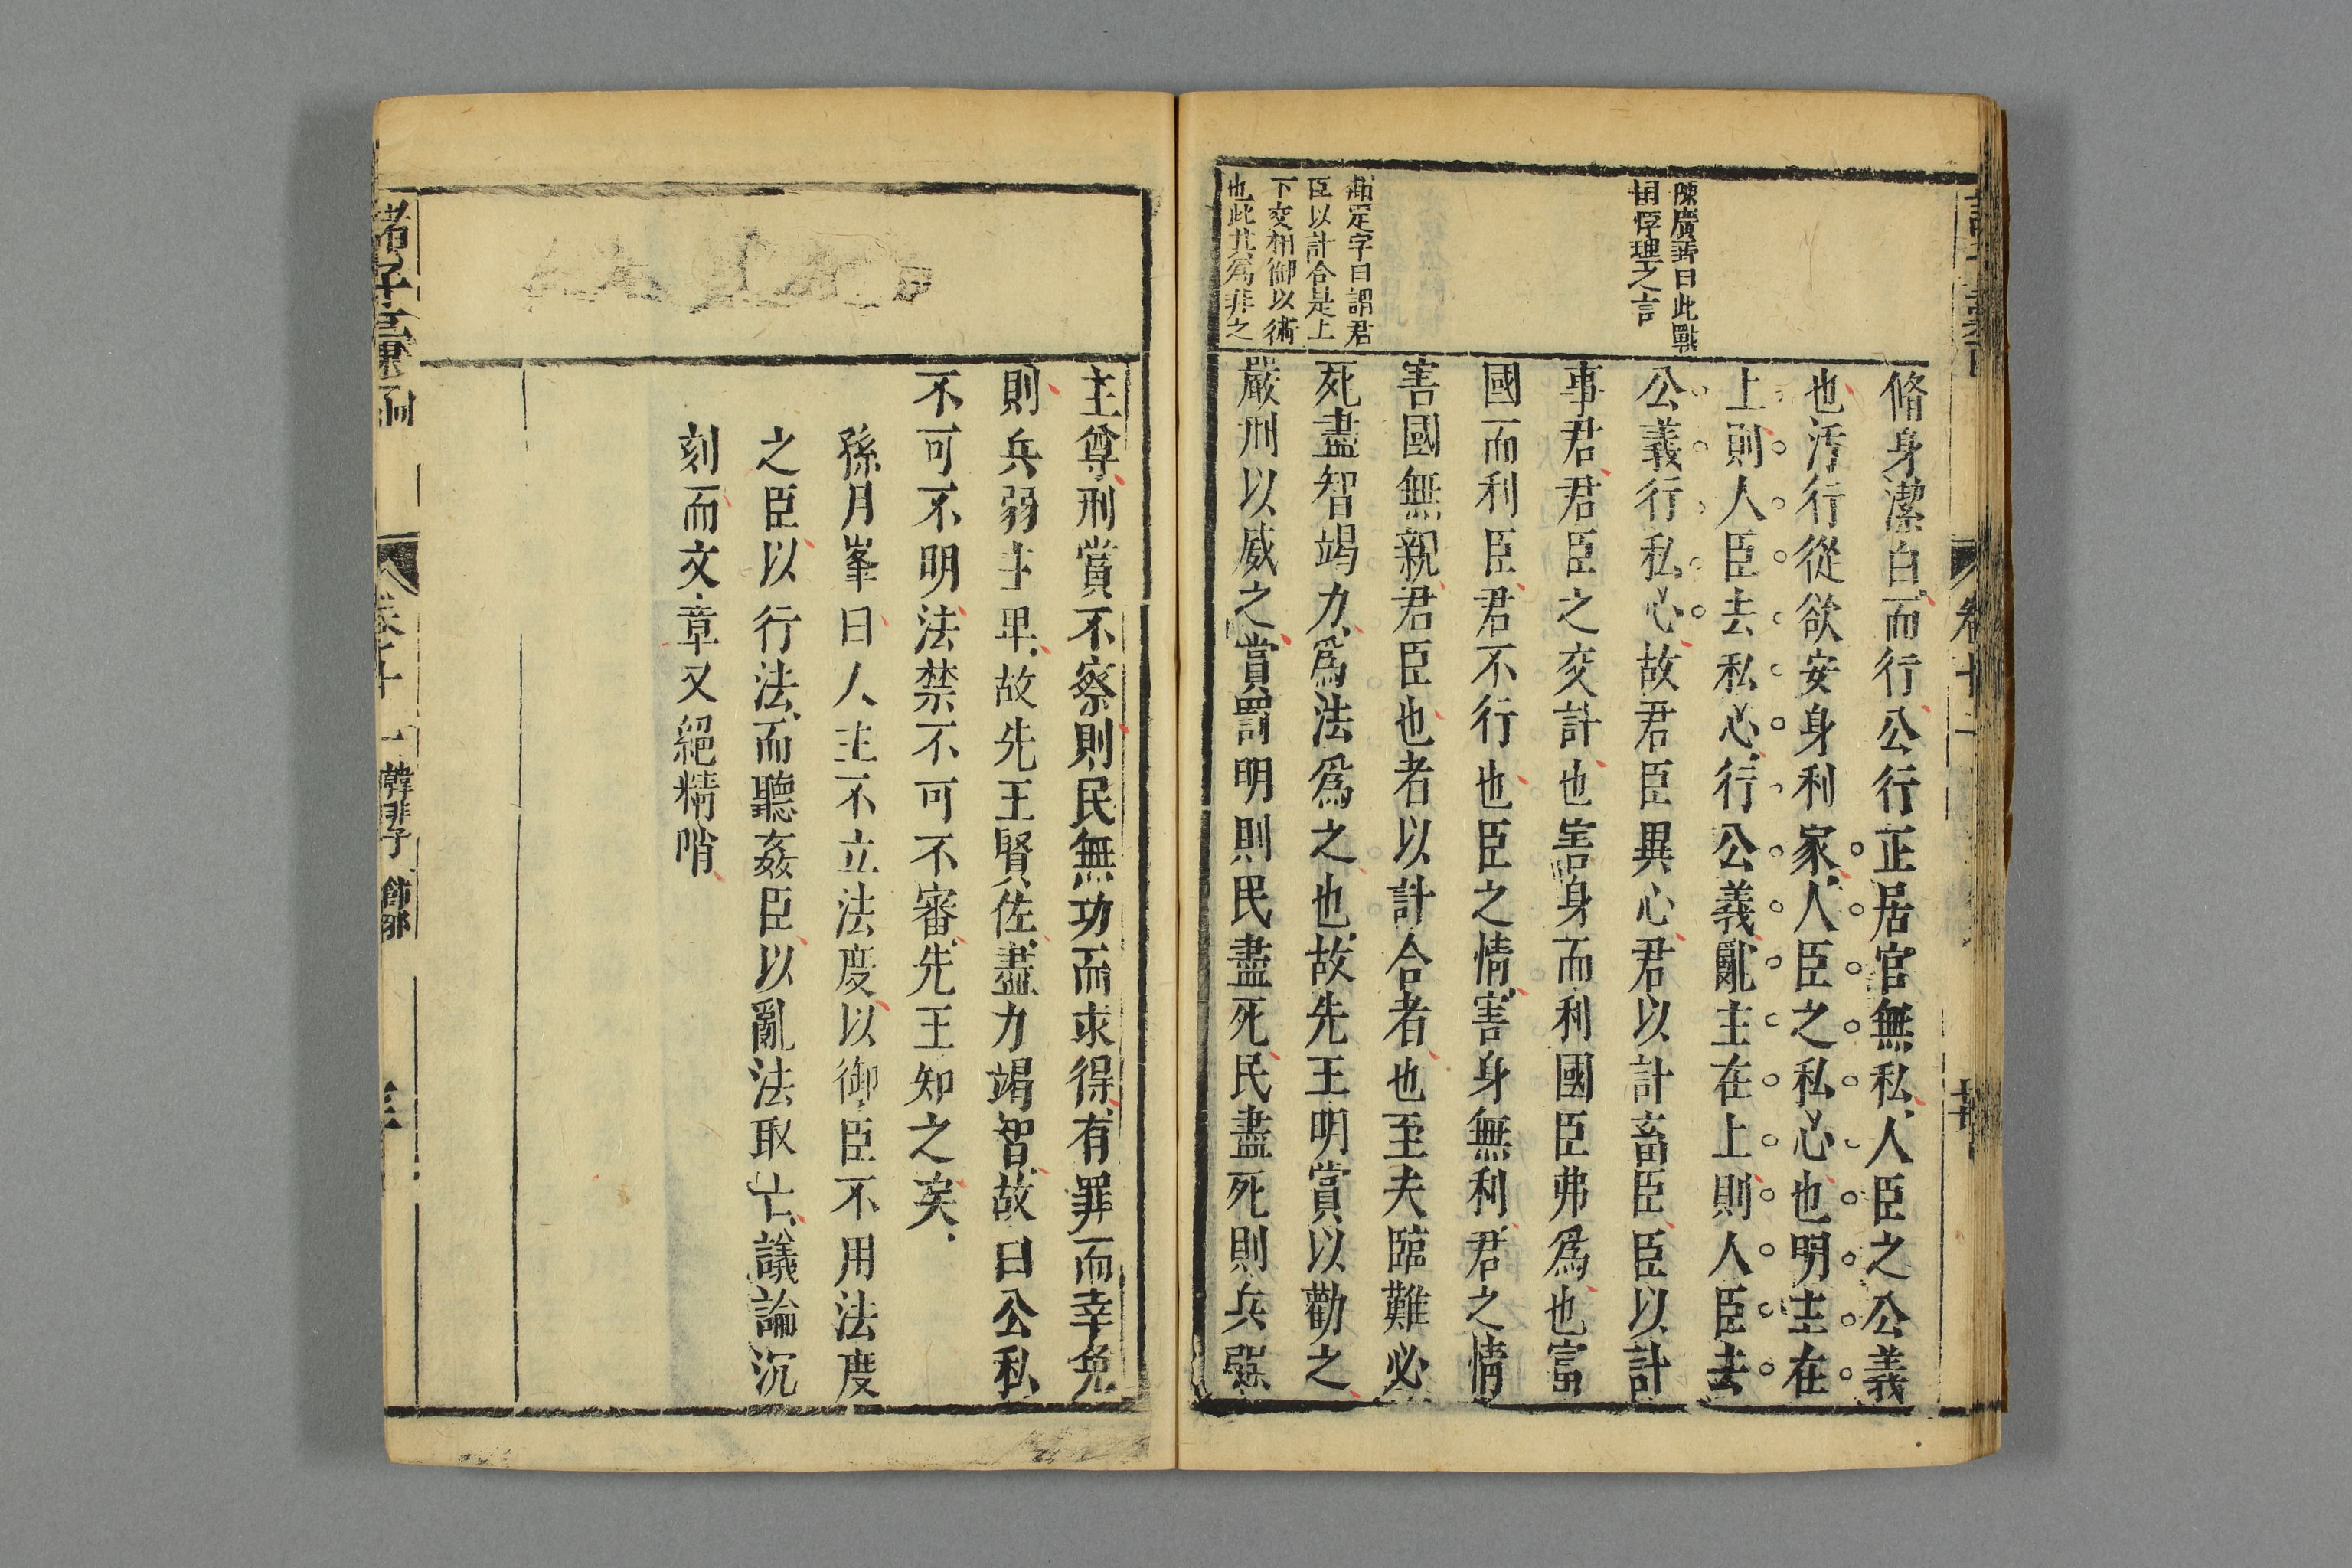 陳廣野曰此戰
國悖理之言
趙定宇曰謂君
臣以計合是上
下交相御以術
也此其爲非之
脩身潔白而行公行正居官無私人臣之公義
也汚行從欲安身利家人臣之私心也明主在
上則人臣去私心行公義亂主在上則人臣去
公義行私心故君臣異心君以計畜臣臣以計
事君君臣之交計也害身而利國臣弗爲也富
國而利臣君不行也臣之情害身無利君之情
害國無親君臣也者以計合者也至夫臨難必
死盡智竭力爲法爲之也故先王明賞以勸之
嚴刑以威之賞罰明則民盡死民盡死則兵强
主尊刑賞不察則民無功而求得有罪而幸免
則兵弱主卑故先王賢佐盡力竭智故曰公私
不可不明法禁不可不審先王知之矣
孫月峯曰人主不立法度以御臣不用法度
之臣以行法而聽姦臣以亂法取亡議論沉
刻而文章又絕精哨
諸子彙函
卷十一
韓非子
飾邪